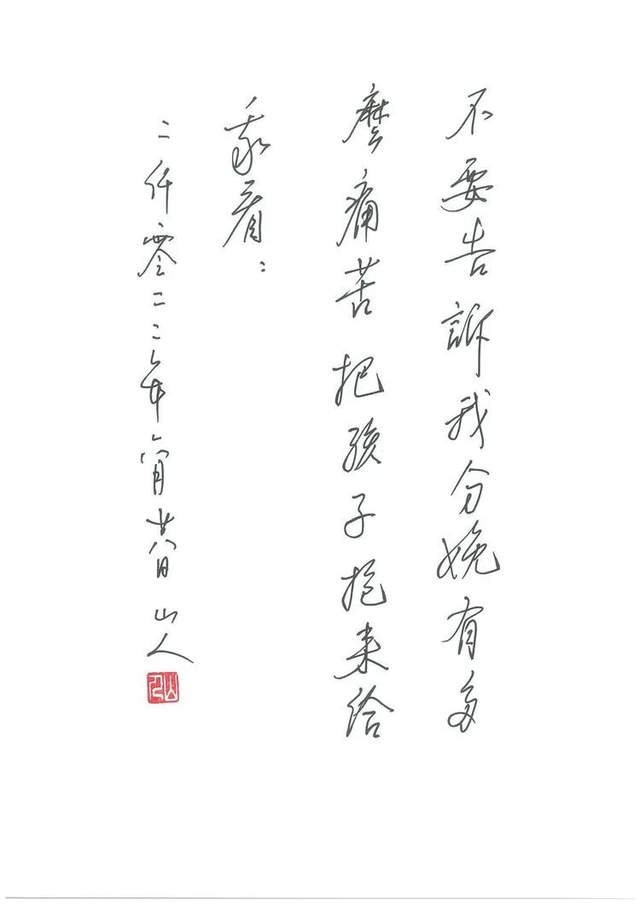 不要告訴我分娩有多
麼痛苦把孩子抱来給
我看：
二仟零二二年六月廿八日 山人
山人